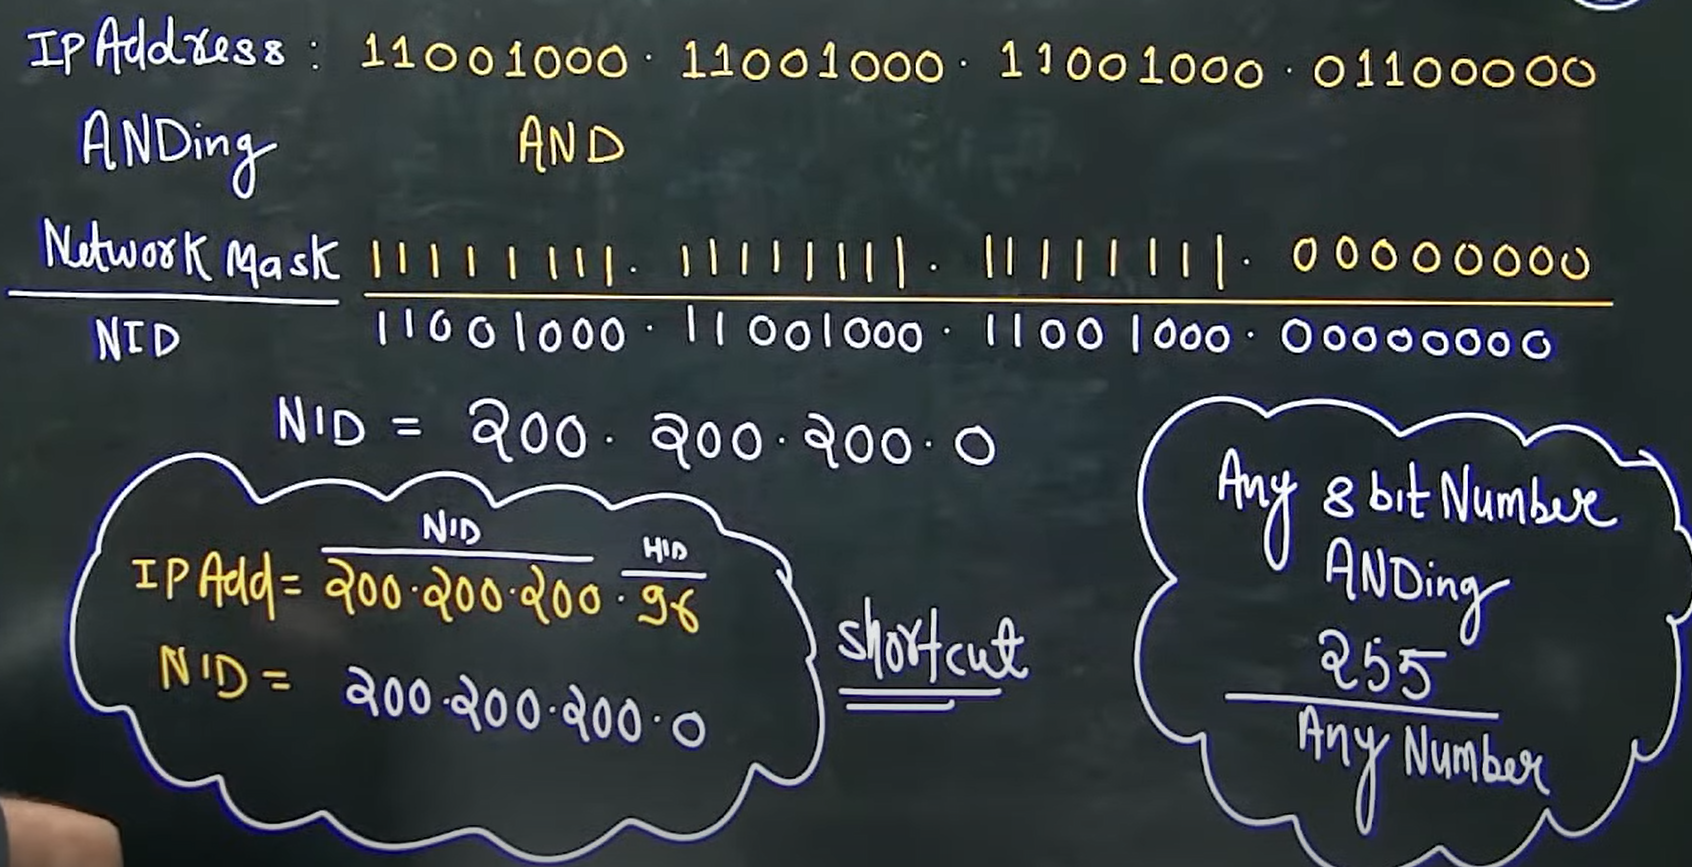 IP Address : 11001000 · 11001000 · 11001000 · 01100000
ANDing AND
Network Mask 11111111 . 11111111 . 11111111 . 00000000
NID 11001000 · 11001000 · 11001000 · 00000000
NID = 200 · 200 · 200 · 0
NID HID
IP Add = 200 · 200 · 200 · 96
NID = 200 · 200 · 200 · 0
shortcut
Any 8 bit Number
ANDing
255
Any Number